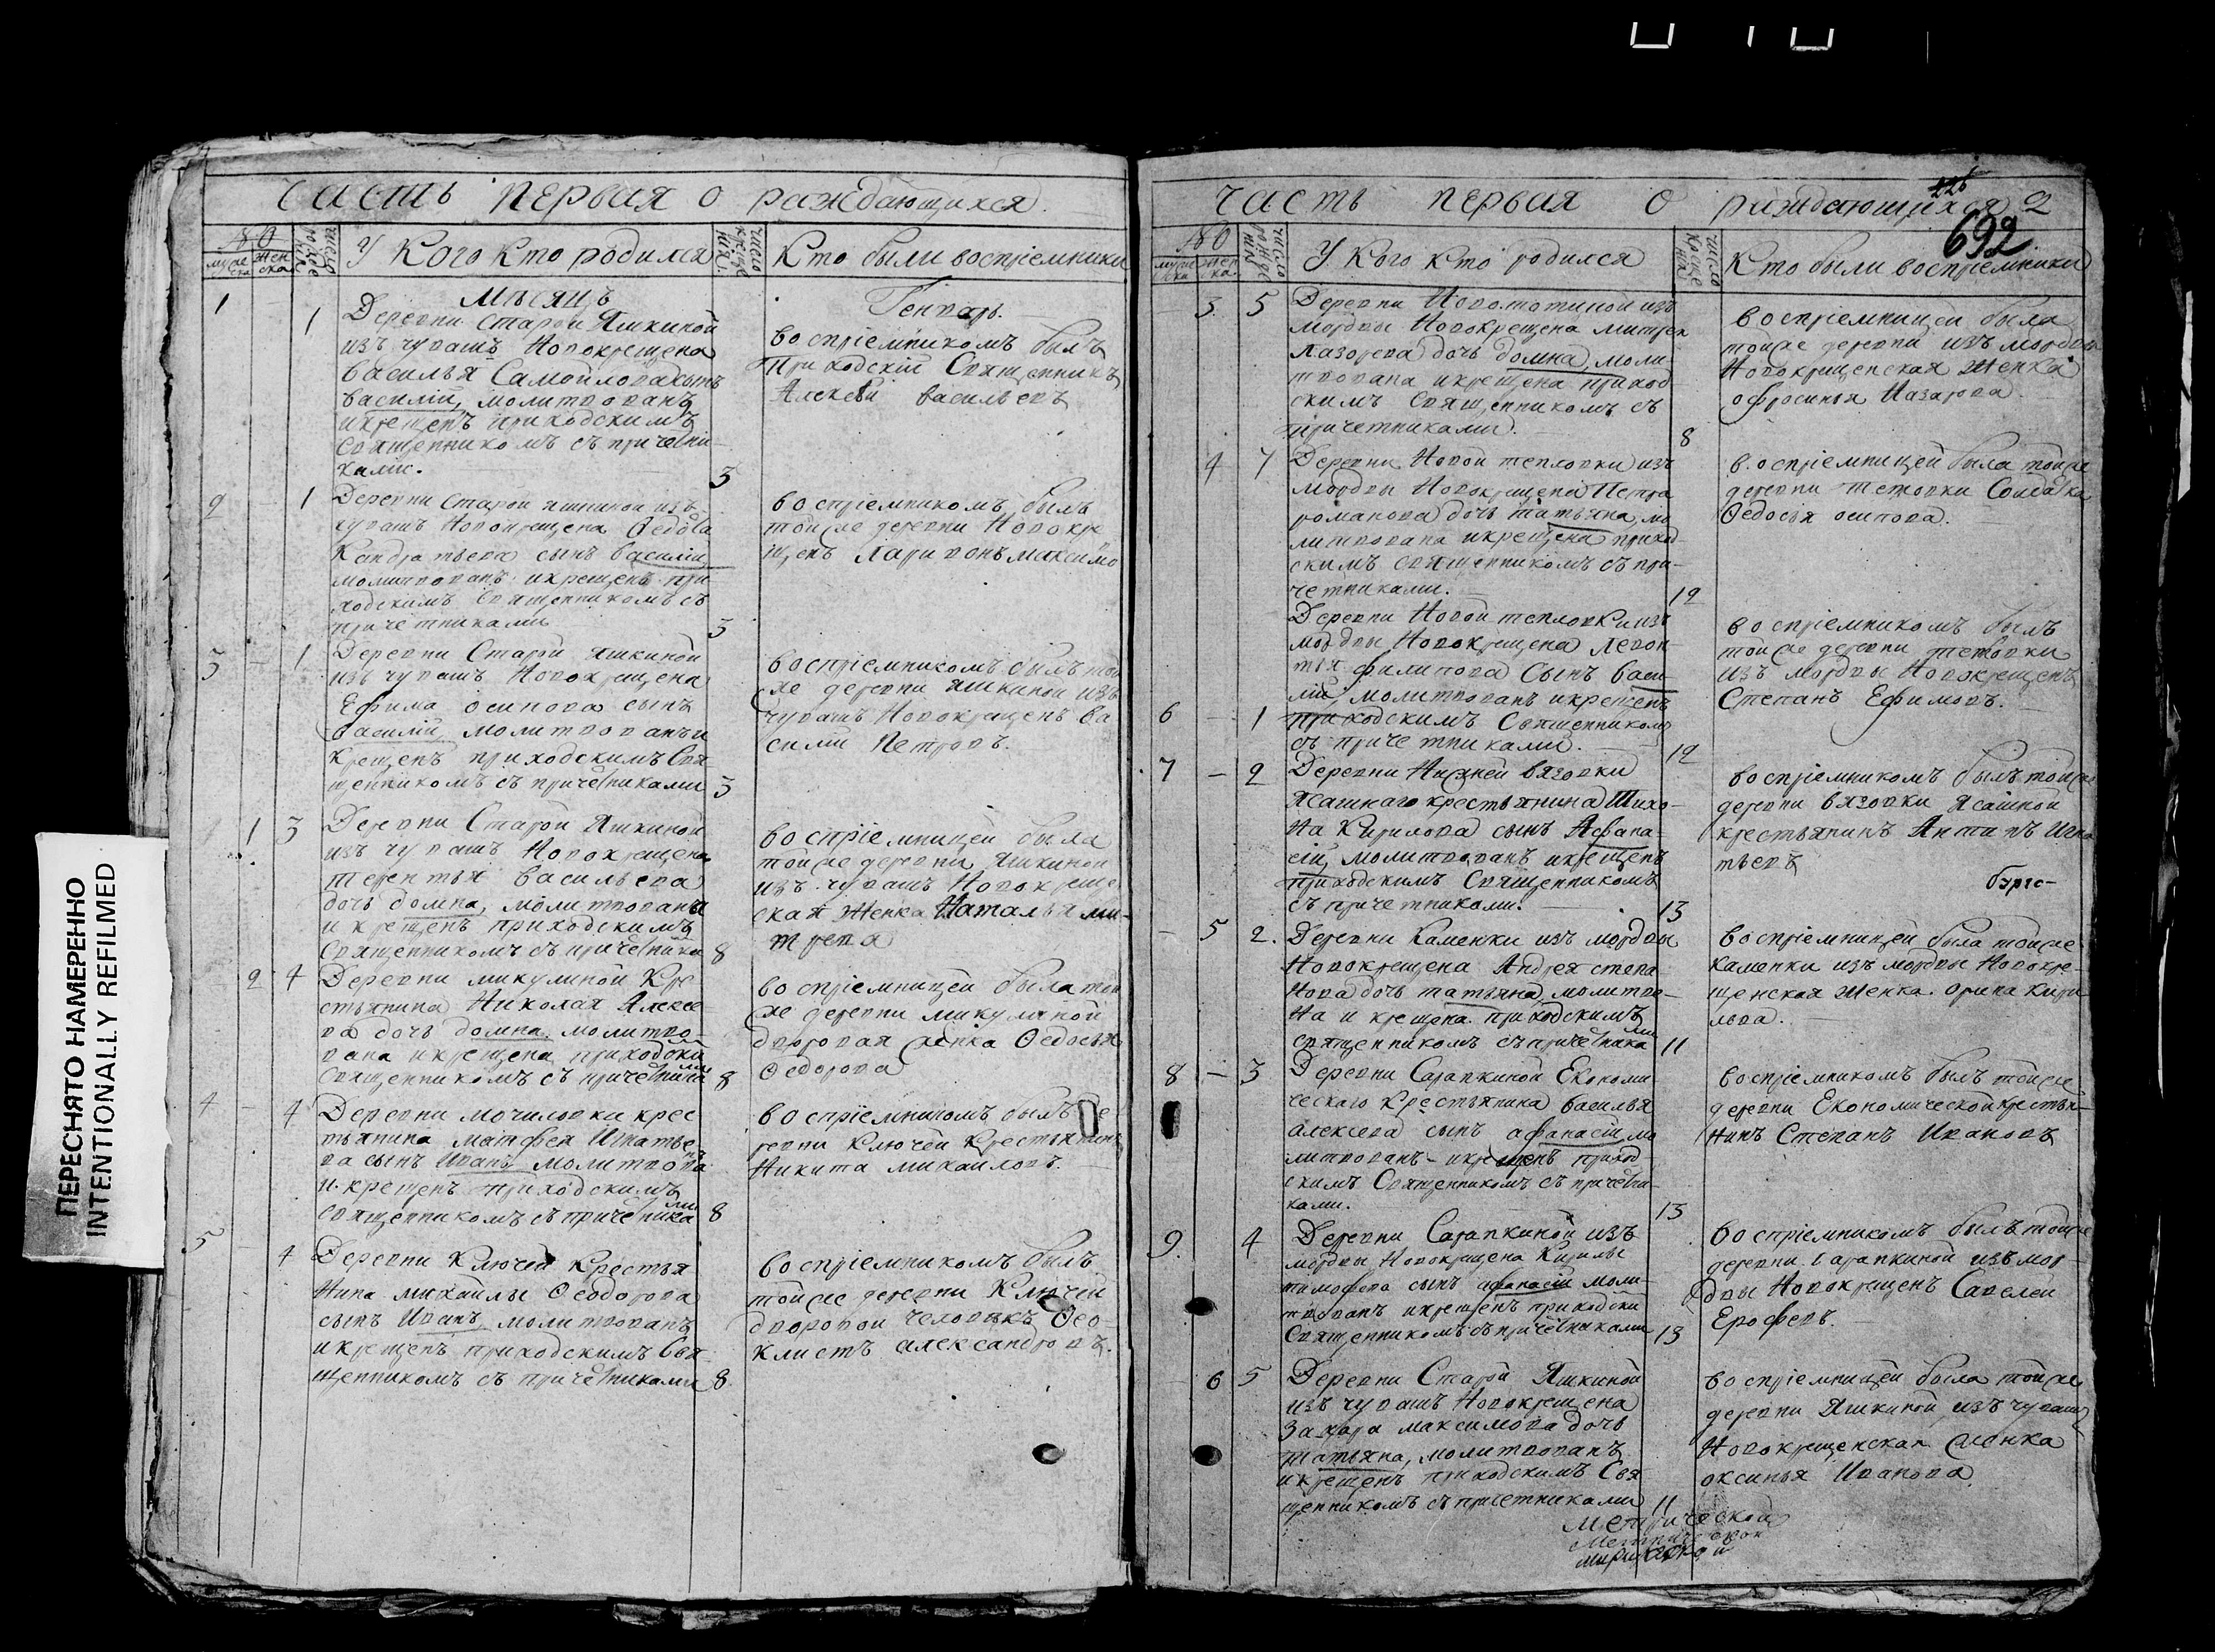 ПЕРЕСНЯТО НАМЕРЕННО
INTENTIONALLY REFILMED
Часть первая о раждающихся
№
муже ска
жен ска
число рожде нія
У кого кто родился
число креще нія
Кто были воспріемники
Мѣсяцъ
Генварь.
1
1
Деревни Старой Яшкиной
изъ чувашъ Новокрещена
Василья Самойлова сынъ
василій, молитвованъ
и крещенъ приходскимъ
Священникомъ съ причетни-
ками.
3
воспріемникомъ былъ
приходскій Священникъ
Алексѣй васильевъ
2
1
Деревни Старой яшкиной изъ
чувашъ Новокрещена Федота
Кандратьева сынъ василій
молитвованъ и крещенъ при-
ходскимъ Священникомъ съ
причетниками
3
воспріемникомъ былъ
тойже деревни Новокре
щенъ Ларивонъ максимо
3
1
Деревни Старой яшкиной
изъ чувашъ Новокрещена
Ефима осипова сынъ
василій, молитвованъ и
крещенъ приходскимъ Свя
щенникомъ съ причетниками
3
воспріемникомъ былъ той
же деревни яшкиной изъ
чувашъ Новокрещенъ Ва
силий Петровъ.
1 3
Деревни Старой Яшкиной
изъ чувашъ Новокрещена
Терентья васильева
дочь домна, молитвована
и крещенъ приходскимъ
Священникомъ съ причетники
8
воспріемницей была
тойже деревни яшкиной
изъ чувашъ Новокреще
ская женка Наталья ми-
трева
2 4
Деревни микулиной Кре
стьянина Николая Алексе
ва дочь домна. молитво-
вана и крещена приходски
Священникомъ съ причетника
8
воспріемницей была той
же деревни микулиной
дворовая женка Федосья
Федорова
4
4
Деревни мочиловки крес
тьянина матфея Игнатье
ва сынъ Иванъ молитвова
и крещенъ приходскимъ
священникомъ съ причетника
8
воспріемникомъ былъ де
ревни Ключей крестьянинъ
Никита михаиловъ.
5
4
Деревни Ключей Крестья
нина михайлы Феодорова
сынъ Иванъ, молитвованъ
и крещенъ приходскимъ Свя
щенникомъ съ причетниками
8
воспріемникомъ былъ
тойже деревни Ключей
дворовой человѣкъ Фео-
клистъ александровъ.
Часть первая о раждающихся
2
692
№
муже ска
жен ка
число рожде нія
У кого кто родился
число креще нія
Кто были воспріемники
3 5
мордвы Новокрещена митрея
Лазорева дочь домна, моли
твована и крещена приход
скимъ Священникомъ съ
причетниками.
8
воспріемницей была
тойже деревни изъ мордвы
Новокрещенская женка
офросинья Назарова
4 7
Деревни Новой тепловки изъ
мордвы Новокрещена Петра
романова дочь татьяна, мо
литвована и крещена приход
скимъ священникомъ съ при-
четниками.
12
воспріемницей была тойже
деревни Солдатка
Федосья осипова.
6
1
Деревни Новой тепловки изъ
мордвы Новокрещена Левон
тья филипова сынъ васи
лій, молитвованъ и крещенъ
приходскимъ Священником
съ причетниками.
12
воспріемникомъ былъ
тойже деревни
изъ мордвы Новокрещенъ
Степанъ Ефимовъ.
7 - 2
Деревни Нижней вязовки
Ясашнаго крестьянина Тихо-
на Кирилова сынъ Афана-
сій, молитвованъ и крещенъ
приходскимъ Священникомъ
съ причетниками.
13
воспріемникомъ былъ тойже
деревни вязовки ясашной
крестьянинъ Антипъ Игна
тьевъ
5 2.
Деревни Каменки изъ мордвы
Новокрещена Андрея степа
нова дочь татьяна, молитво-
на и крещена приходскимъ
священникомъ съ причетника
ми
11
воспріемницей была тойже
Каменки изъ мордвы Новокре-
щенская женка. орина Кири
лова.
8 - 3
Деревни Сарапкиной Економи
ческаго крестьянина василья
алексева сынъ афанасій, мо
литвованъ и крещенъ приход
скимъ Священникомъ съ причетни-
ками.
13
воспріемникомъ былъ тойже
деревни Економической крестья-
нинъ Степанъ Ивановъ
9.
4
Деревни Сарапкиной изъ
мордвы Новокрещена Кирилы
тимофева сынъ афанасій моли-
твованъ и крещенъ приходски
Священникомъ съ причетниками
13
воспріемникомъ былъ тойже
деревни Сарапкиной изъ мор-
двы Новокрещенъ Савелей
Ерофеевъ.
6 5
Деревни Старой Яшкиной
изъ чувашъ Новокрещена
Захара максимова дочь
татьяна, молитвованъ
и крещенъ приходскимъ Свя
щенникомъ съ причетниками
11
воспріемницей была тойже
деревни Яшкиной, изъ чувашъ
Новокрещенская женка
оксинья Иванова
Метрической